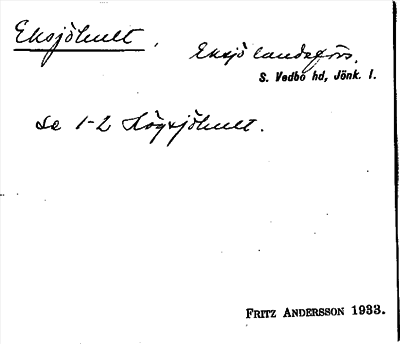 Eksjöhult.
Eksjö landsförs.
S. Vedbo hd, Jönk. l.
Se 1-2 Högsjöhult.
FRITZ ANDERSSON 1933.